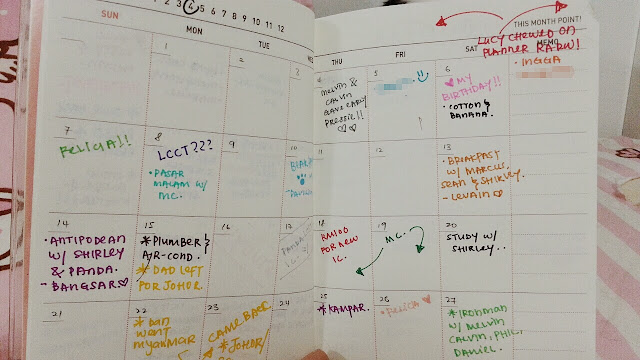 1 2 3 4 5 6 7 8 9 10 11 12
SUN
MON
TUE
WED
THU
FRI
SAT
THIS MONTH POINT!
MEMO
LUCY CHEWED ON
PLANNER RAWR!
• INGGA
1
2
3
4
MELVIN &
CALVIN
GAVE EARLY
PRESSIE!!
♡♡
5
6
♥ MY
BIRTHDAY!!
• COTTON &
BANANA.
7
FELICIA!!
8
LCCT???
• PASAR
MALAM W/
MC.
9
10
11
12
13
• BREAKFAST
W/ MARCUS,
SEAN & SHIRLEY.
- LEVAIN ♡
14
• ANTIPODEAN
W/ SHIRLEY
& PANDA.
- BANGSAR ♡
15
* PLUMBER &
AIR-COND.
* DAD LEFT
FOR JOHOR.
16
17
PANDA
18
RM100
FOR NEW
IC.
19
MC.
20
STUDY W/
SHIRLEY..
21
22
* DAD
WENT
MYANMAR
23
CAME BACK.
* JOHOR/
24
25
* KAMPAR.
26
• FELICIA ♥
27
* IRONMAN
W/ MELVIN
CALVIN, PHIL,
DANIEL.